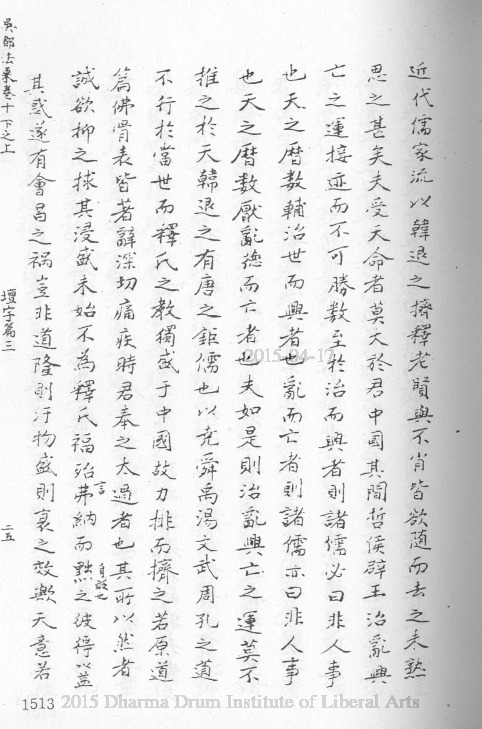 近代儒家流以韓退之擠釋老賢與不肖皆欲隨而去之未熟
思之甚矣夫受天命者莫大於君中國其間哲侯辟王治亂興
亡之運接迹而不可勝數至於治而興者則諸儒必曰非人事
也天之曆數輔治世而興者也亂而亡者則諸儒亦曰非人事
也天之曆數厭亂德而亡者也夫如是則治亂興亡之運莫不
推之於天韓退之有唐之鉅儒也以堯舜禹湯文武周孔之道
不行於當世而釋氏之教獨盛于中國故力排而擠之若原道
篇佛骨表皆著辭深切痛疾時君奉之太過者也其所以然者
誠欲抑之捄其浸盛未始不為釋氏福殆弗納而黜之彼得以蓋
言
自敓也
其惑遂有會昌之禍豈非道隆則汙物盛則衰之效歟天意若
吳都法乘卷十下之上
壇宇篇三
二五
2015-04-17
1513 2015 Dharma Drum Institute of Liberal Arts